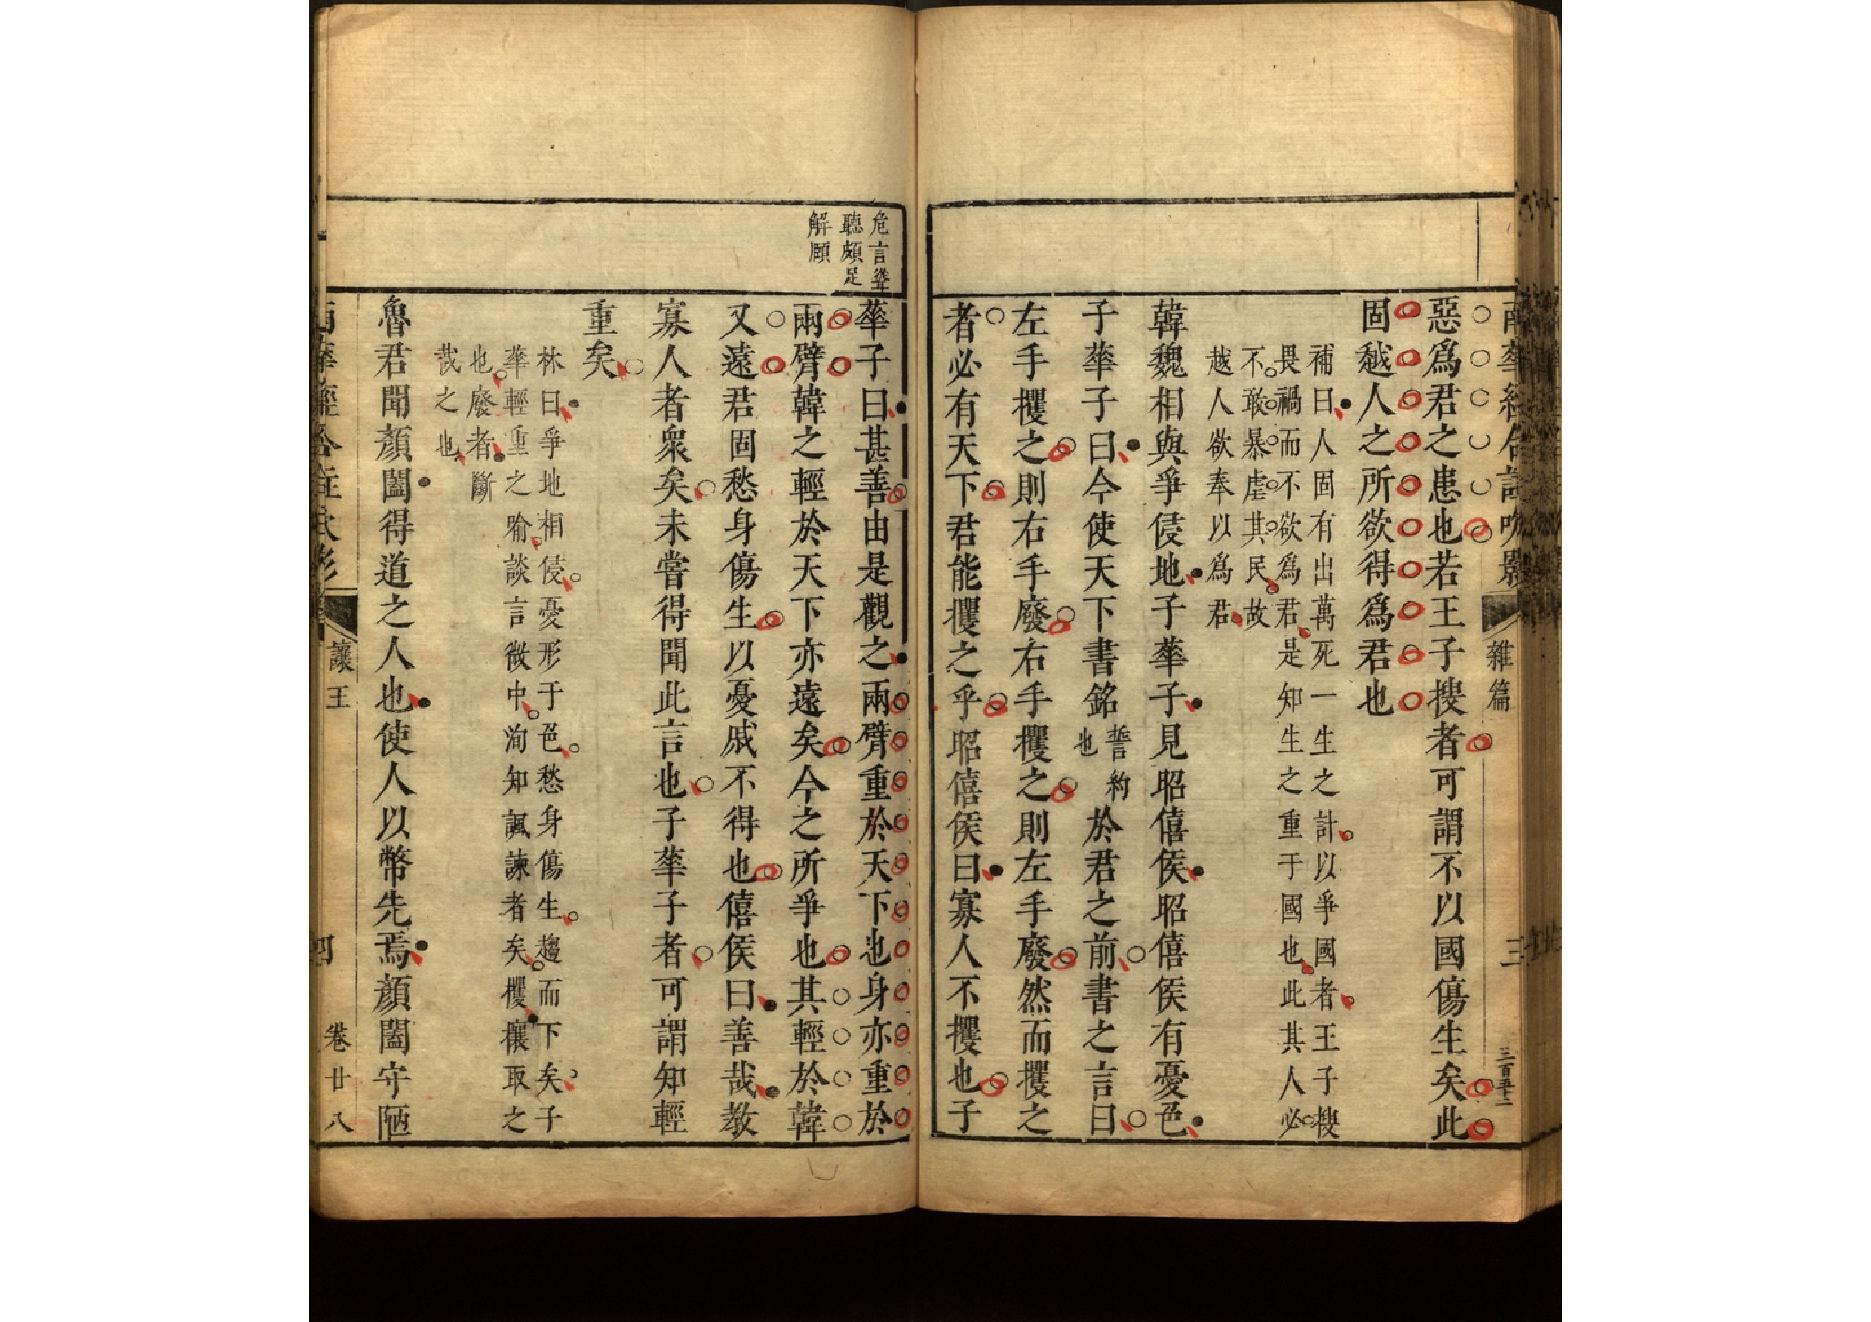 雜篇
三百五十二
惡爲君之患也若王子搜者可謂不以國傷生矣此
固越人之所欲得爲君也
補曰人固有出萬死一生之計以爭國者王子搜
畏禍而不欲爲君是知生之重于國也此其人必
不敢暴虐其民故
越人欲奉以爲君
韓魏相與爭侵地子華子見昭僖侯昭僖侯有憂色
子華子曰今使天下書銘誓約也於君之前書之言曰
左手攫之則右手廢右手攫之則左手廢然而攫之
者必有天下君能攫之乎昭僖侯曰寡人不攫也子
危言聳
聽頗足
解頤
華子曰甚善由是觀之兩臂重於天下也身亦重於
兩臂韓之輕於天下亦遠矣今之所爭也其輕於韓
又遠君固愁身傷生以憂戚不得也僖侯曰善哉教
寡人者衆矣未嘗得聞此言也子華子者可謂知輕
重矣
林曰爭地相侵憂形于色愁身傷生趨而下矣子
華輕重之喻談言微中洵知諷諫者矣攫攘取之
也廢者斷
哉之也
魯君聞顏闔得道之人也使人以幣先焉顏闔守陋
讓王
卷廿八